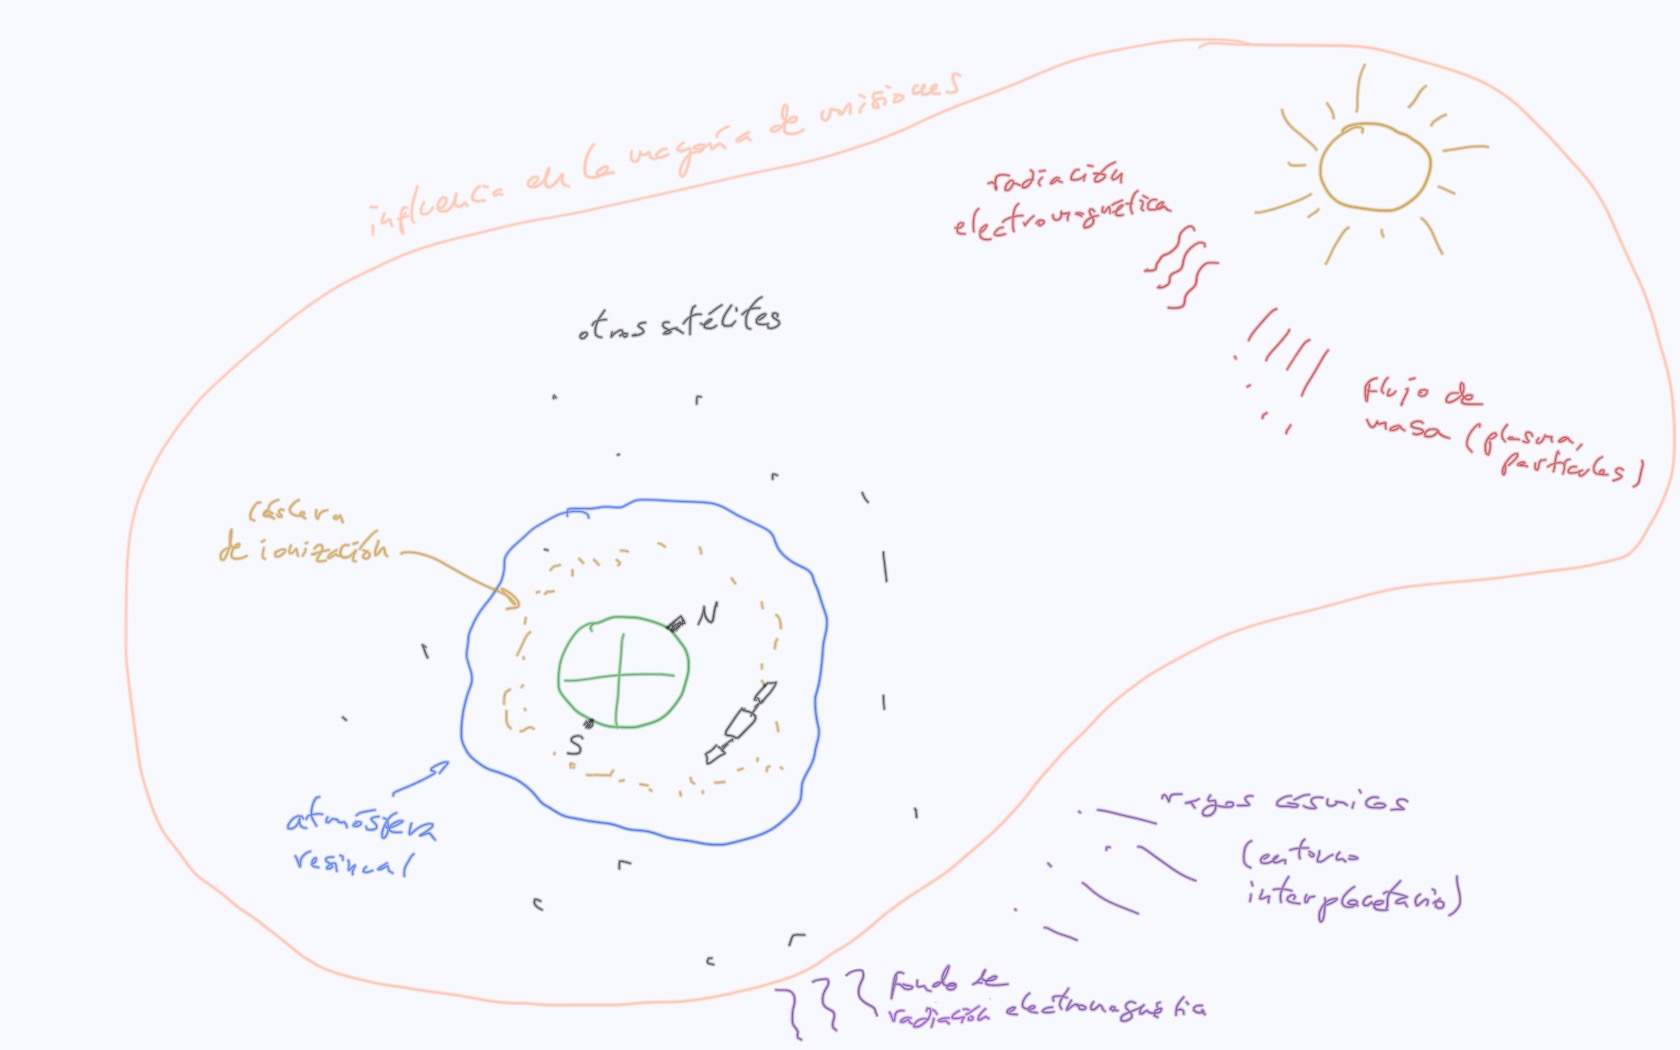 influencia en la mayoría de misiones
radiación
electromagnética
otros satélites
flujo de
masa (plasma,
partículas)
cáscara
de ionización
N
S
atmósfera
residual
rayos cósmicos
(entorno
interplanetario)
fondo de
radiación electromagnética